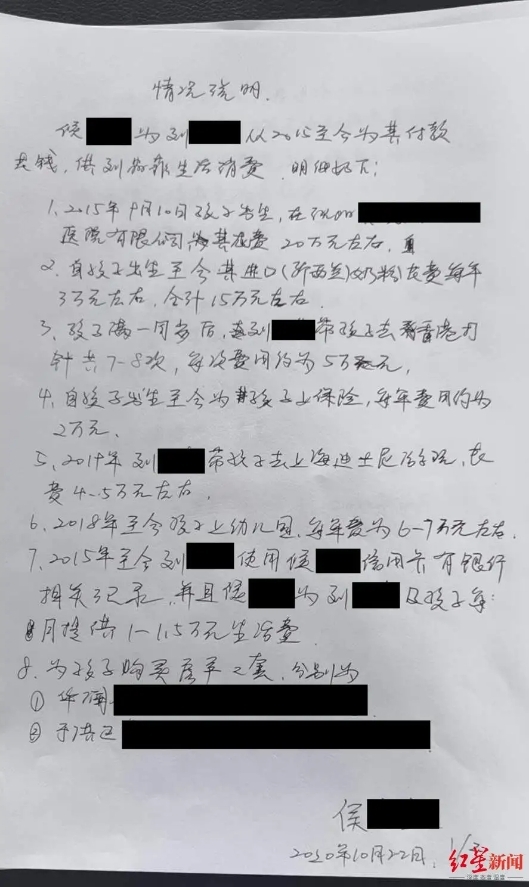 情况说明.
侯 为刘 从2015至今为其付款
花钱, 供刘 生活消费. 明细如下:
1. 2015年9月10日孩子出生, 在沈阳
医院有限公司为其花费20万元左右,
2. 自孩子出生至今其进口(新西兰)奶粉花费每年
3万元左右, 合计15万元左右.
3. 孩子满一周岁后, 刘 带孩子去香港打
针共7-8次, 每次费用约为5万元.
4. 自孩子出生至今为孩子上保险, 每年费用约为
2万元.
5. 2019年刘 带孩子去上海迪士尼游玩, 花
费4-5万元左右.
6. 2018年至今孩子上幼儿园, 每年费为6-7万元左右.
7. 2015年至今刘 使用侯 信用卡有银行
相关记录, 并且侯 为刘 及孩子每
月提供1-1.5万元生活费.
8. 为孩子购买房产2套, 分别为
①
② 于洪区
侯
2020年10月22日.
红星新闻